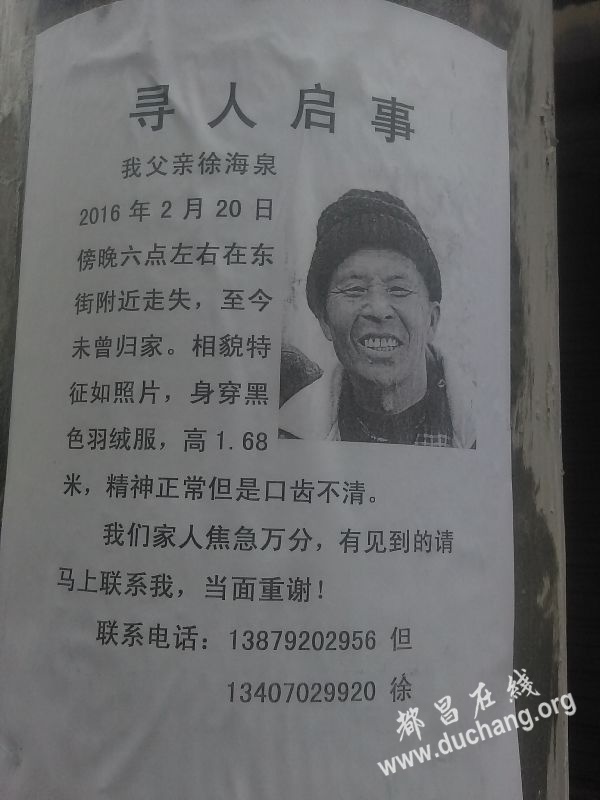 寻人启事
我父亲徐海泉
2016年2月20日
傍晚六点左右在东
街附近走失，至今
未曾归家。相貌特
征如照片，身穿黑
色羽绒服，高1.68
米，精神正常但是口齿不清。
我们家人焦急万分，有见到的请
马上联系我，当面重谢！
联系电话：13879202956 但
13407029920 徐
都昌在线
www.duchang.org